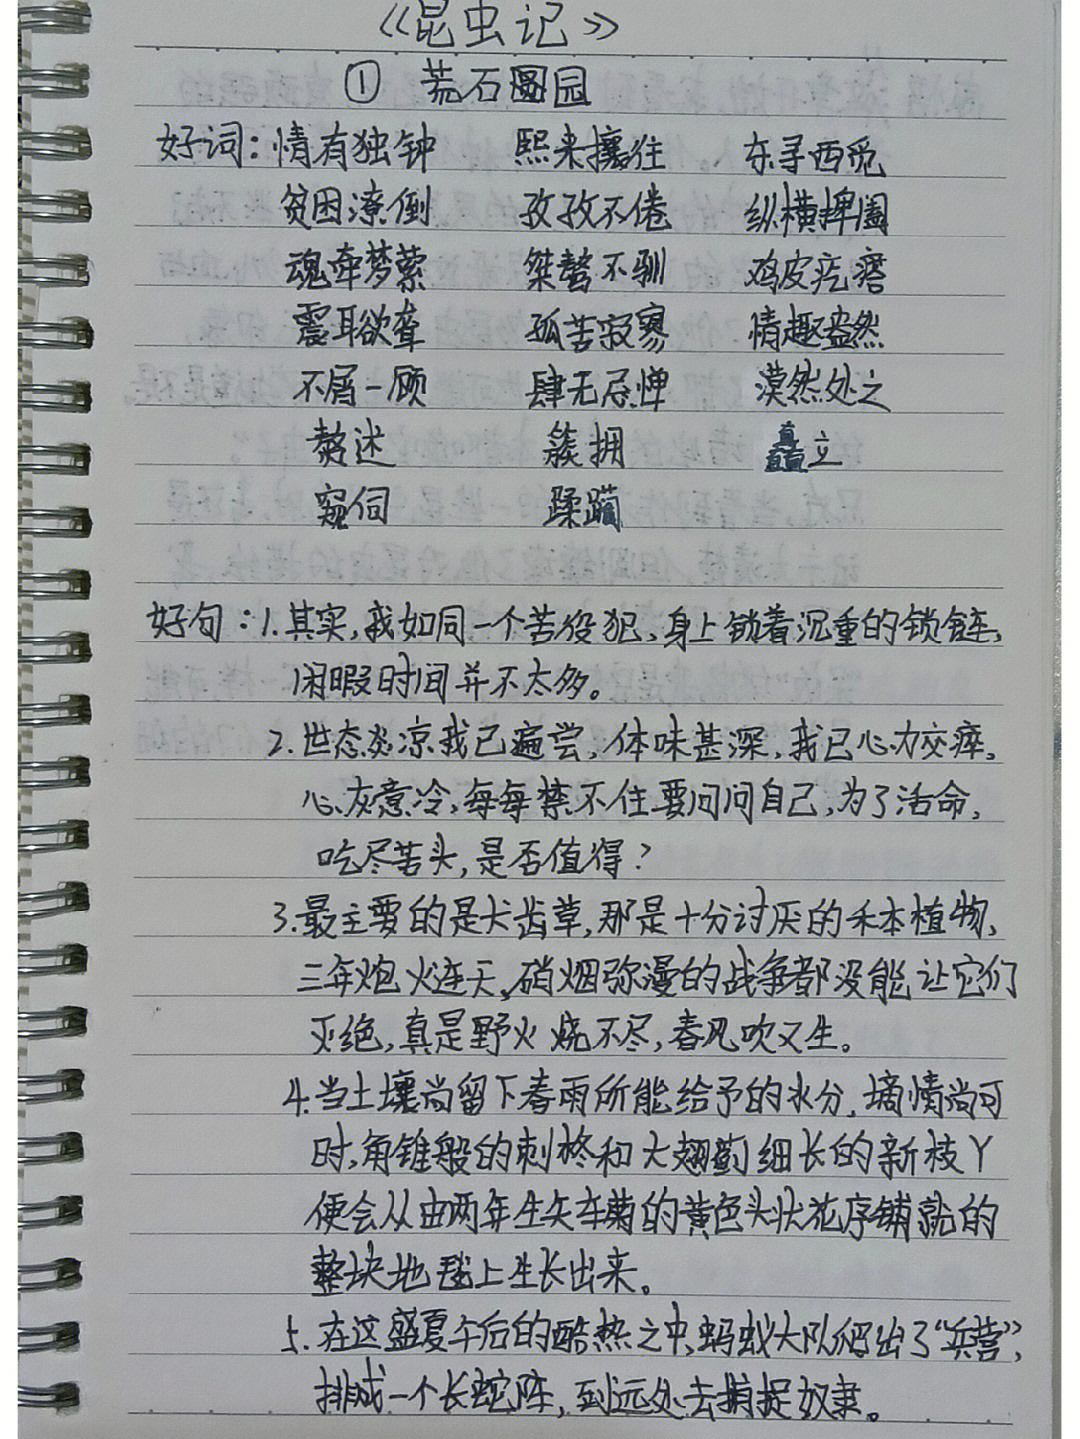 《昆虫记》
① 荒石园
好词：情有独钟 熙来攘往 东寻西觅
贫困潦倒 孜孜不倦 纵横捭阖
魂牵梦萦 桀骜不驯 鸡皮疙瘩
震耳欲聋 孤苦寂寥 情趣盎然
不屑一顾 肆无忌惮 漠然处之
赘述 簇拥 矗立
窥伺 蹂躏
好句：1.其实,我如同一个苦役犯,身上锁着沉重的锁链,
闲暇时间并不太多。
2.世态炎凉我已遍尝,体味甚深,我已心力交瘁,
心灰意冷,每每禁不住要问问自己,为了活命,
吃尽苦头,是否值得?
3.最主要的是犬齿草,那是十分讨厌的禾本植物,
三年炮火连天,硝烟弥漫的战争都没能让它们
灭绝,真是野火烧不尽,春风吹又生。
4.当土壤尚留下春雨所能给予的水分,墒情尚可
时,角锥般的刺柊和大翅蓟细长的新枝丫
便会从由两年生矢车菊的黄色头状花序铺就的
整块地毯上生长出来。
5.在这盛夏午后的酷热之中,蚂蚁大队爬出了“兵营”,
排成一个长蛇阵,到远处去捕捉奴隶。